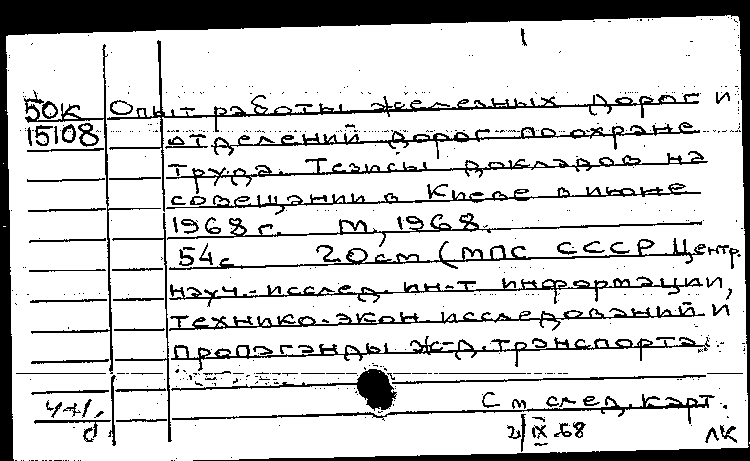 1
50К Опыт работы железных дорог и
15108 отделений дорог по охране
труда. Тезисы докладов на
совещании в Киеве в июне
1968 г. М, 1968.
54 с 20 см (МПС СССР Центр.
науч.-исслед. ин-т информации,
технико-экон. исследований и
пропаганды ж-д. транспорта.
См след. карт.
2/IX-68 ЛК